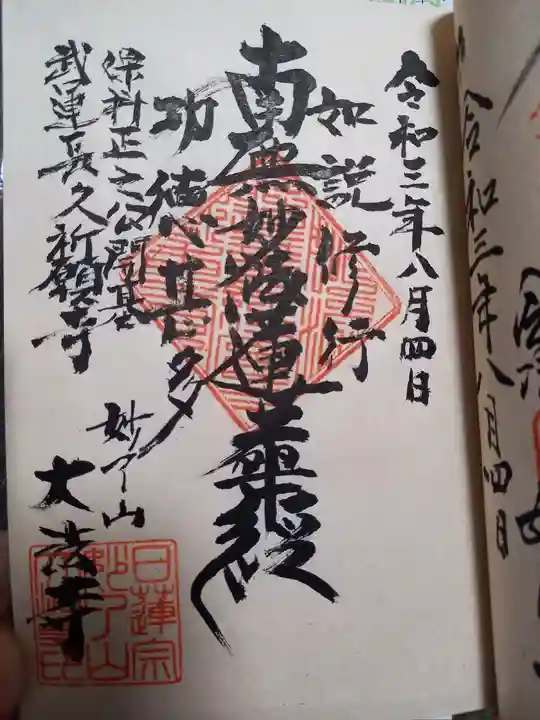 令和三年八月四日
如説修行
南無妙法蓮華経
功徳甚多
保科正之公開基
武運長久祈願寺
妙了山
大法寺
日蓮宗
妙了山
大法寺印
令和三年八月四日